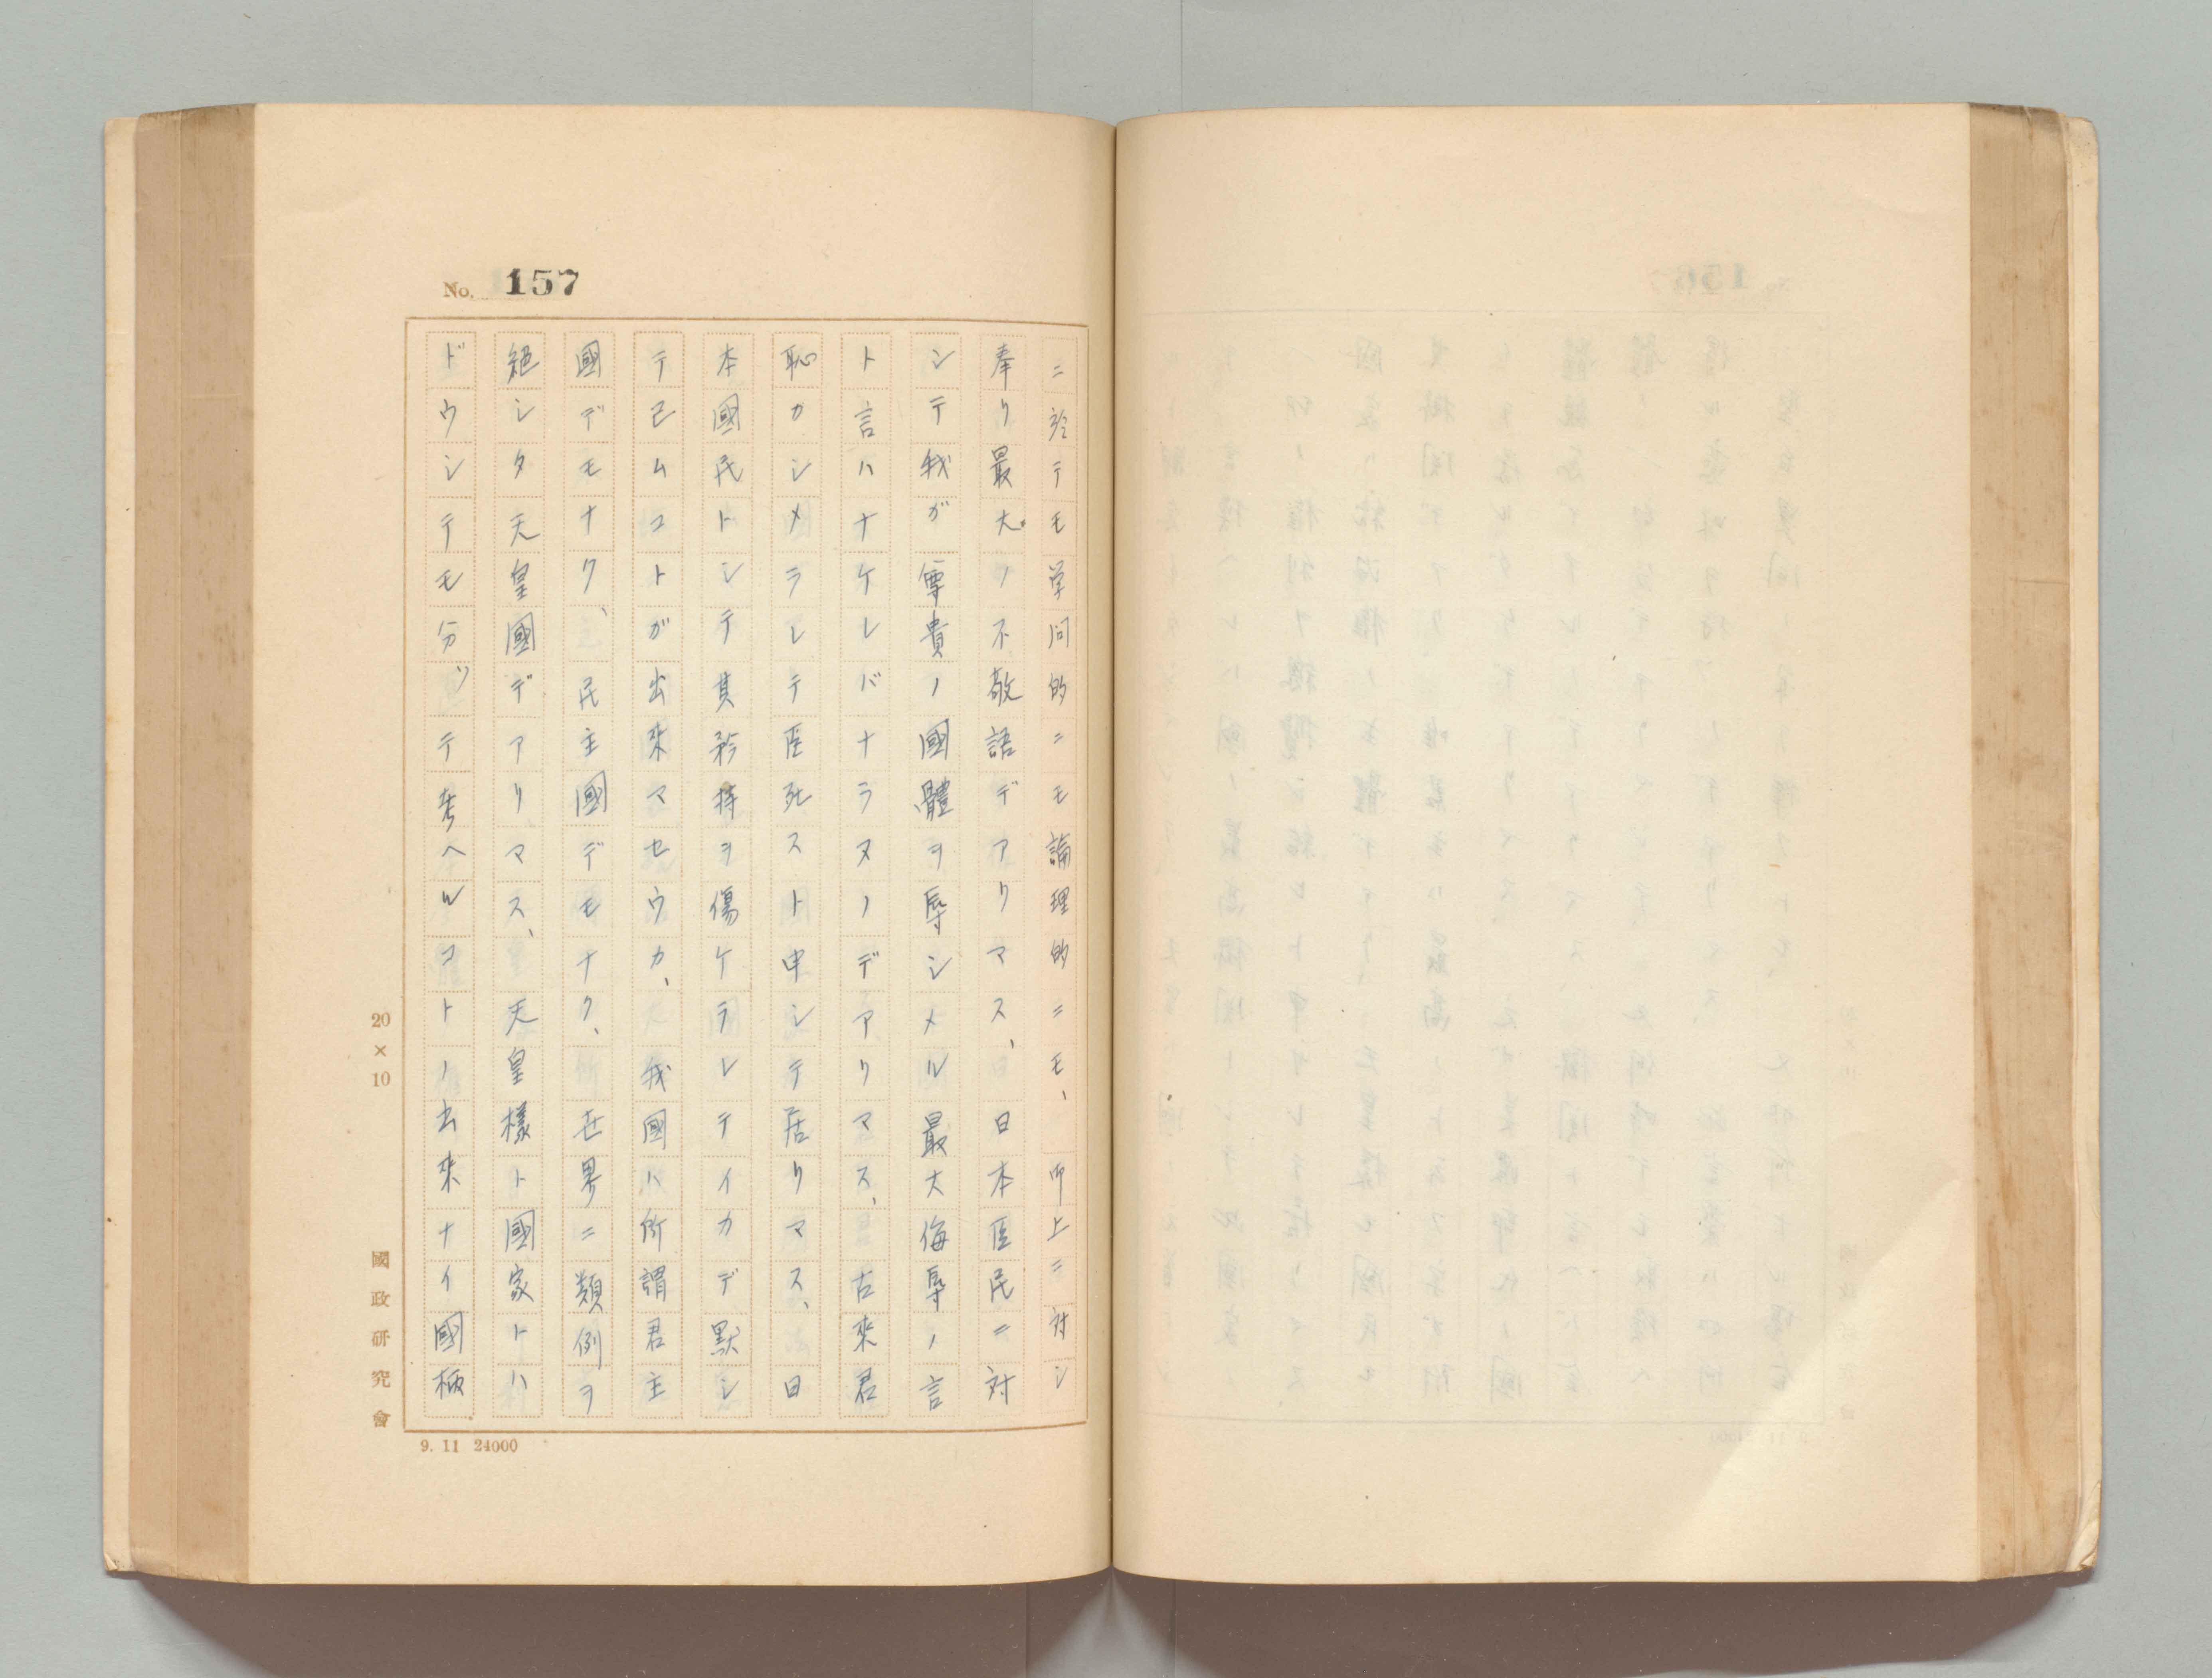 No. 157
ニ於テモ学問的ニモ論理的ニモ、 御上ニ対シ
奉リ最大ノ不敬語デアリマス、 日本臣民ニ対
シテ我ガ尊貴ノ國體ヲ辱シメル最大侮辱ノ言
ト言ハナケレバナラヌノデアリマス、 古來君
恥カシメラレテ臣死スト申シテ居リマス、 日
本國民トシテ其矜持ヲ傷ケラレテイカデ默シ
テ已ムコトガ出來マセウカ、 我國ハ所謂君主
國デモナク、 民主國デモナク、 世界ニ類例ヲ
絕シタ天皇國デアリマス、 天皇樣ト國家トハ
ドウシテモ分ッテ考ヘルコトノ出來ナイ國柄
20×10
國政研究會
9. 11 24000